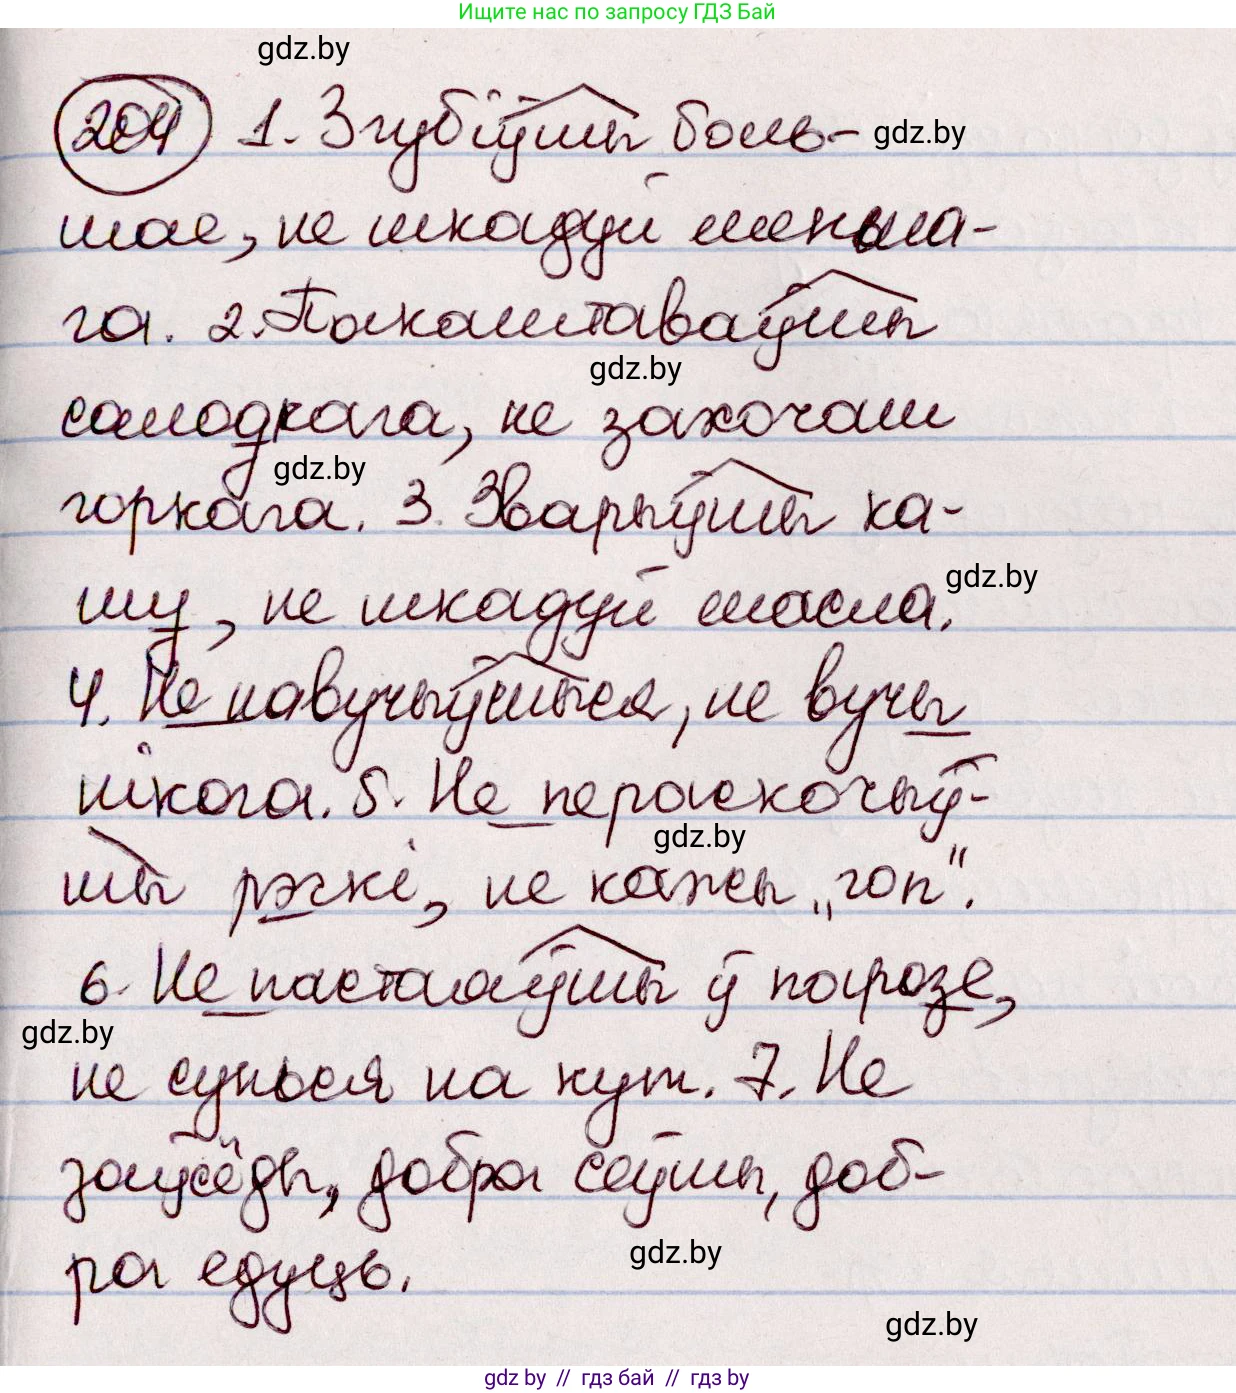 Ищите нас по запросу ГДЗ Бай
gdz.by
204 1. Згубіўшы боль- gdz.by
шае, не шкадуй меньша-
га. 2. Пакаштаваўшы
gdz.by
салодкага, не захочаш
gdz.by
горкага. 3. Зварыўшы ка-
gdz.by
шу, не шкадуй масла.
4. Не навучыўшыся, не вучы
нікога. 5. Не пераскочыў-
gdz.by
шы рэчкі, не кажы „гоп".
6. Не пастаяўшы ў парозе,
gdz.by
не сунься на кут. 7. Не
заўсёды, добра сеўшы, доб-
gdz.by
ра едуць.
gdz.by
gdz.by // гдз бай // гдз by